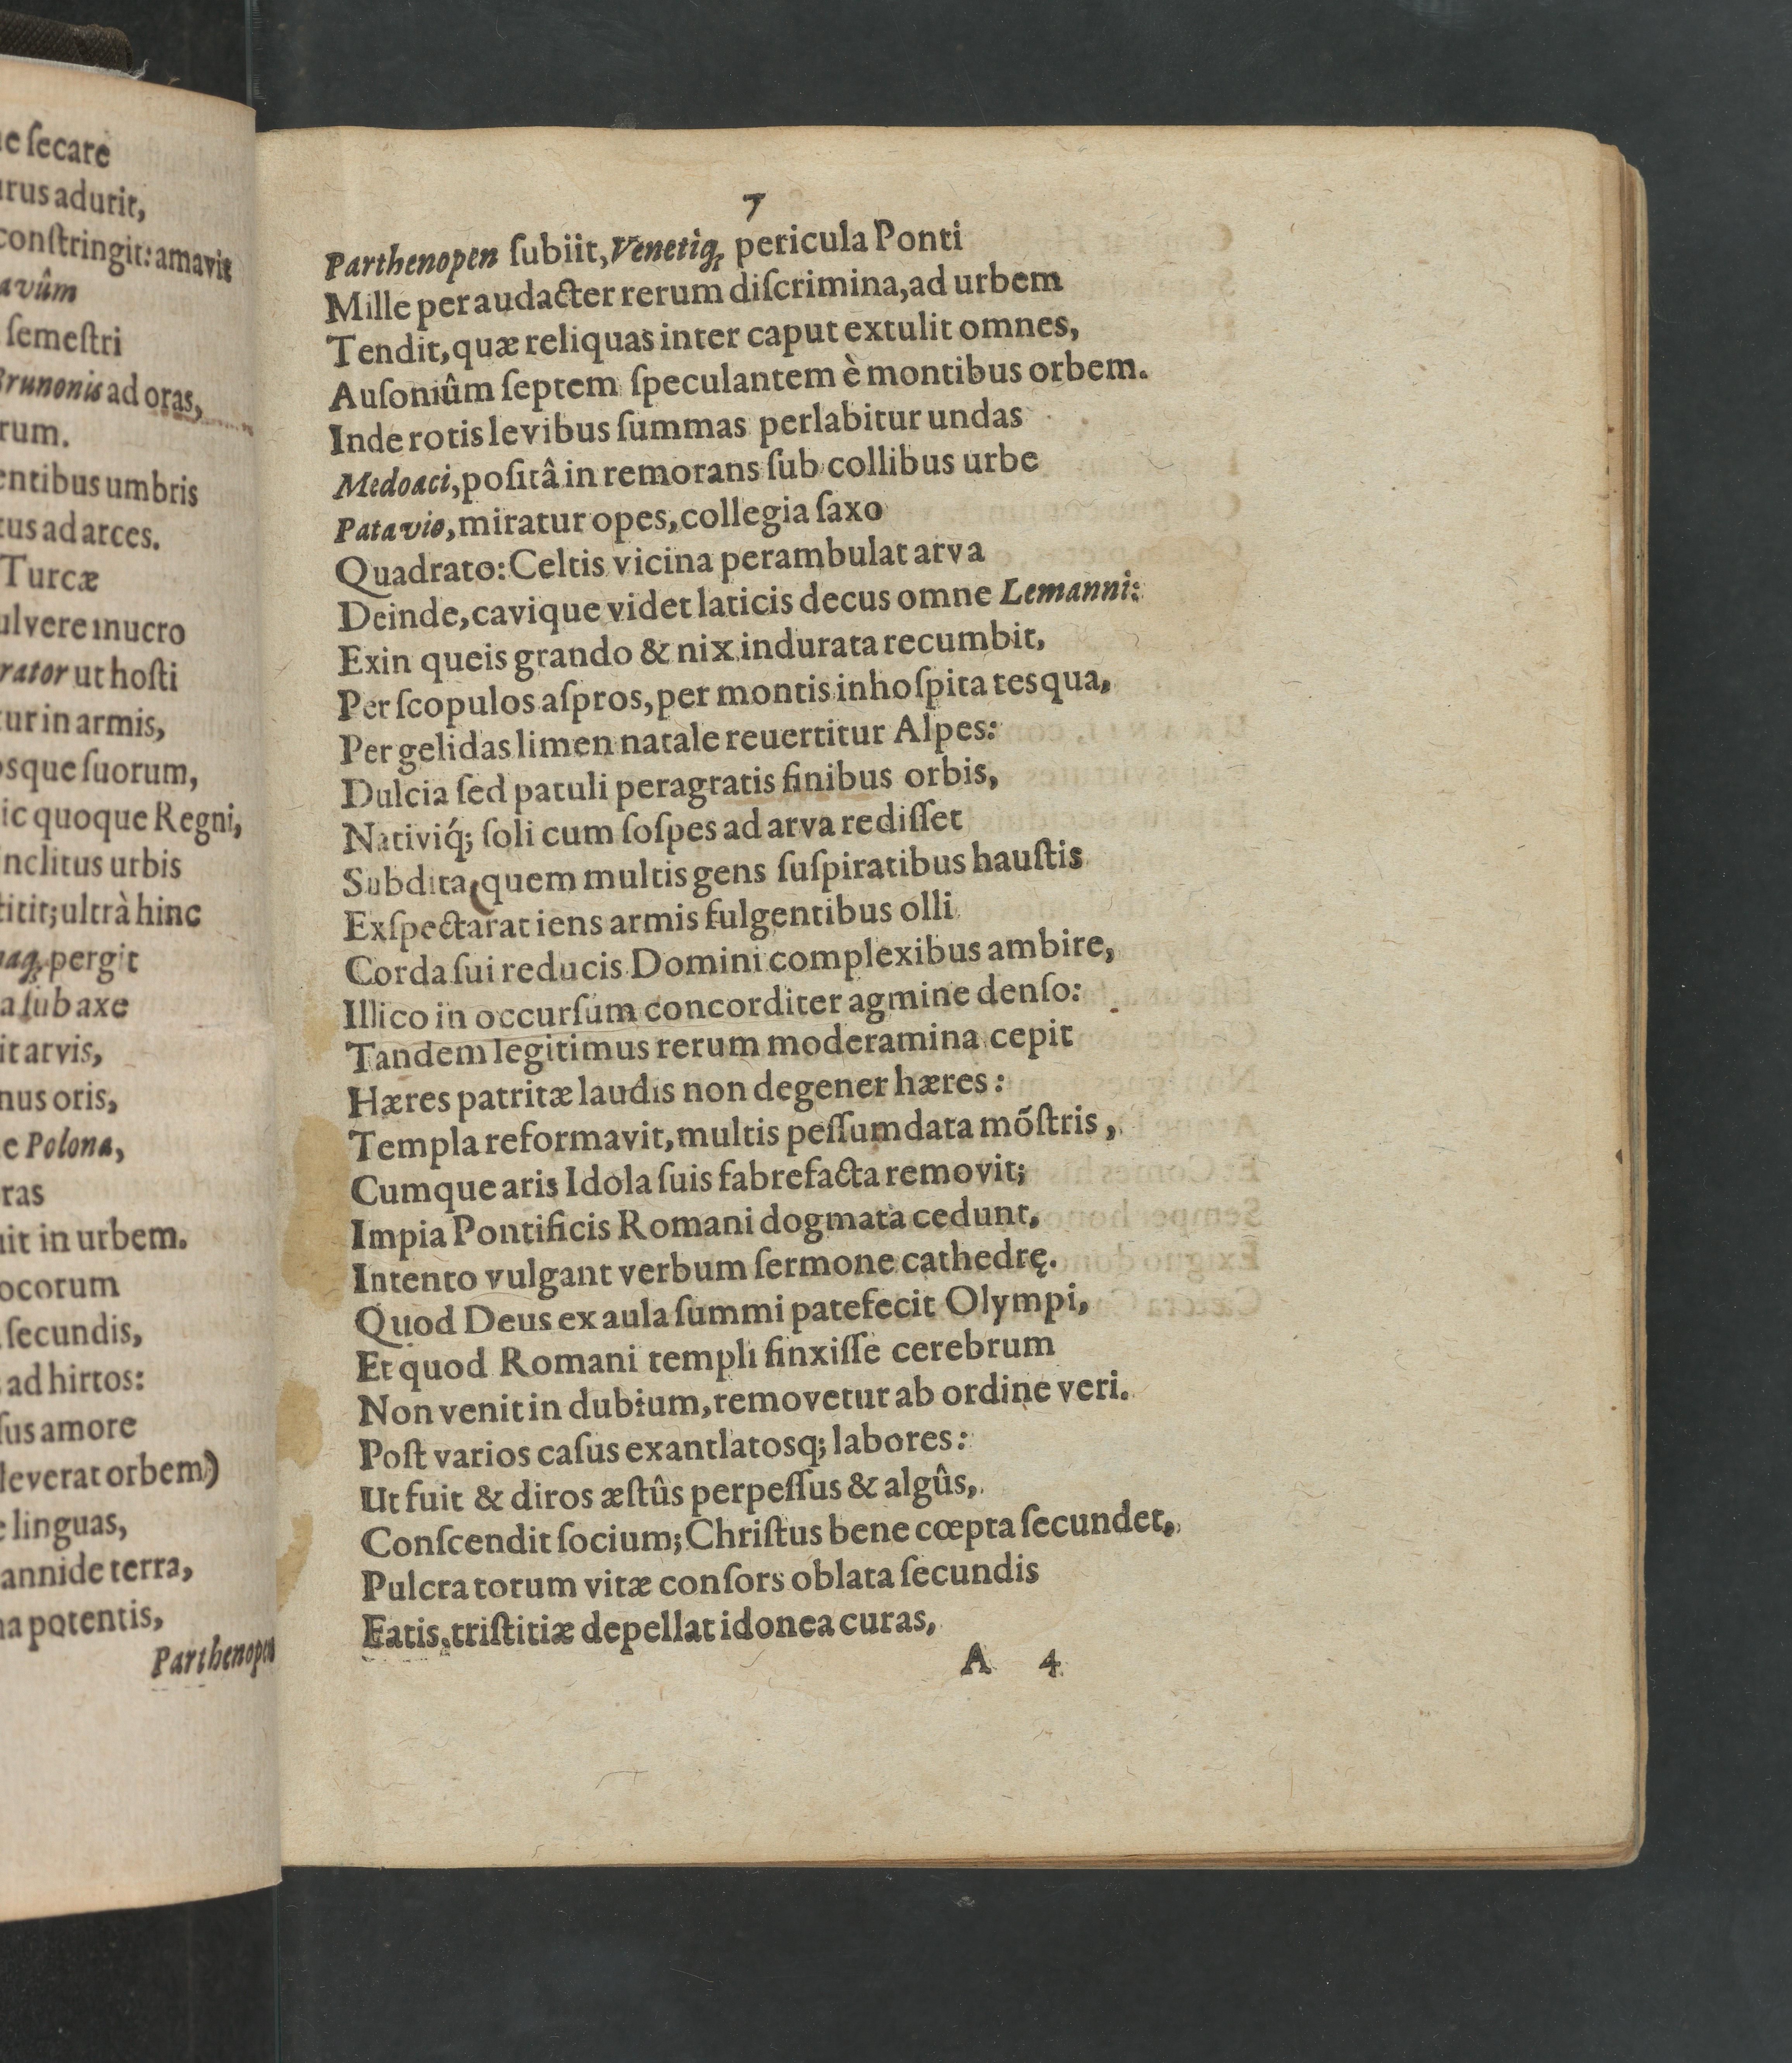 ne ſecare
urus adurit,
conſtringit: amavit
avûm
ſemeſtri
Brunonis ad oras,
rum.
entibus umbris
tus ad arces.
Turcæ
ulvere mucro
rator ut hoſti
tur in armis,
osque ſuorum,
ic quoque Regni,
inclitus urbis
titit; ultrà hinc
naq; pergit
a ſub axe
it arvis,
nus oris,
e Polona,
ras
uit in urbem.
ocorum
ſecundis,
ad hirtos:
ſus amore
leverat orbem)
e linguas,
annide terra,
na potentis,
Parthenopen
7
Parthenopen ſubiit, Venetiq; pericula Ponti
Mille per audacter rerum diſcrimina, ad urbem
Tendit, quæ reliquas inter caput extulit omnes,
Auſoniûm ſeptem ſpeculantem è montibus orbem.
Inde rotis levibus ſummas perlabitur undas
Medoaci, poſitâ in remorans ſub collibus urbe
Patavio, miratur opes, collegia ſaxo
Quadrato: Celtis vicina perambulat arva
Deinde, cavique videt laticis decus omne Lemanni:
Exin queis grando & nix indurata recumbit,
Per ſcopulos aſpros, per montis inhoſpita tesqua,
Per gelidas limen natale reuertitur Alpes:
Dulcia ſed patuli peragratis finibus orbis,
Nativiq́; ſoli cum ſoſpes ad arva rediſſet
Subdita, quem multis gens ſuſpiratibus hauſtis
Exſpectarat iens armis fulgentibus olli
Corda ſui reducis Domini complexibus ambire,
Illico in occurſum concorditer agmine denſo:
Tandem legitimus rerum moderamina cepit
Hæres patritæ laudis non degener hæres:
Templa reformavit, multis peſſumdata mõſtris,
Cumque aris Idola ſuis fabrefacta removit;
Impia Pontificis Romani dogmata cedunt,
Intento vulgant verbum ſermone cathedrę.
Quod Deus ex aula ſummi patefecit Olympi,
Et quod Romani templi finxiſſe cerebrum
Non venit in dubium, removetur ab ordine veri.
Poſt varios caſus exantlatosq; labores:
Ut fuit & diros æſtûs perpeſſus & algûs,
Conſcendit ſocium; Chriſtus bene cœpta ſecundet,
Pulcra torum vitæ conſors oblata ſecundis
Fatis, triſtitiæ depellat idonea curas,
A 4